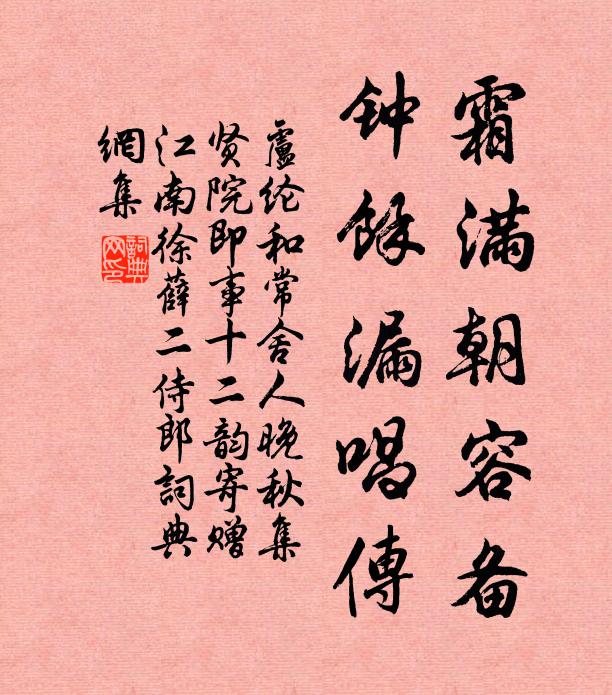 霜满朝容备
钟馀漏唱傳
盧纶和常舍人晚秋集
贤院即事十二韵寄赠
江南徐薛二侍郎詞典
網集
詞典网印